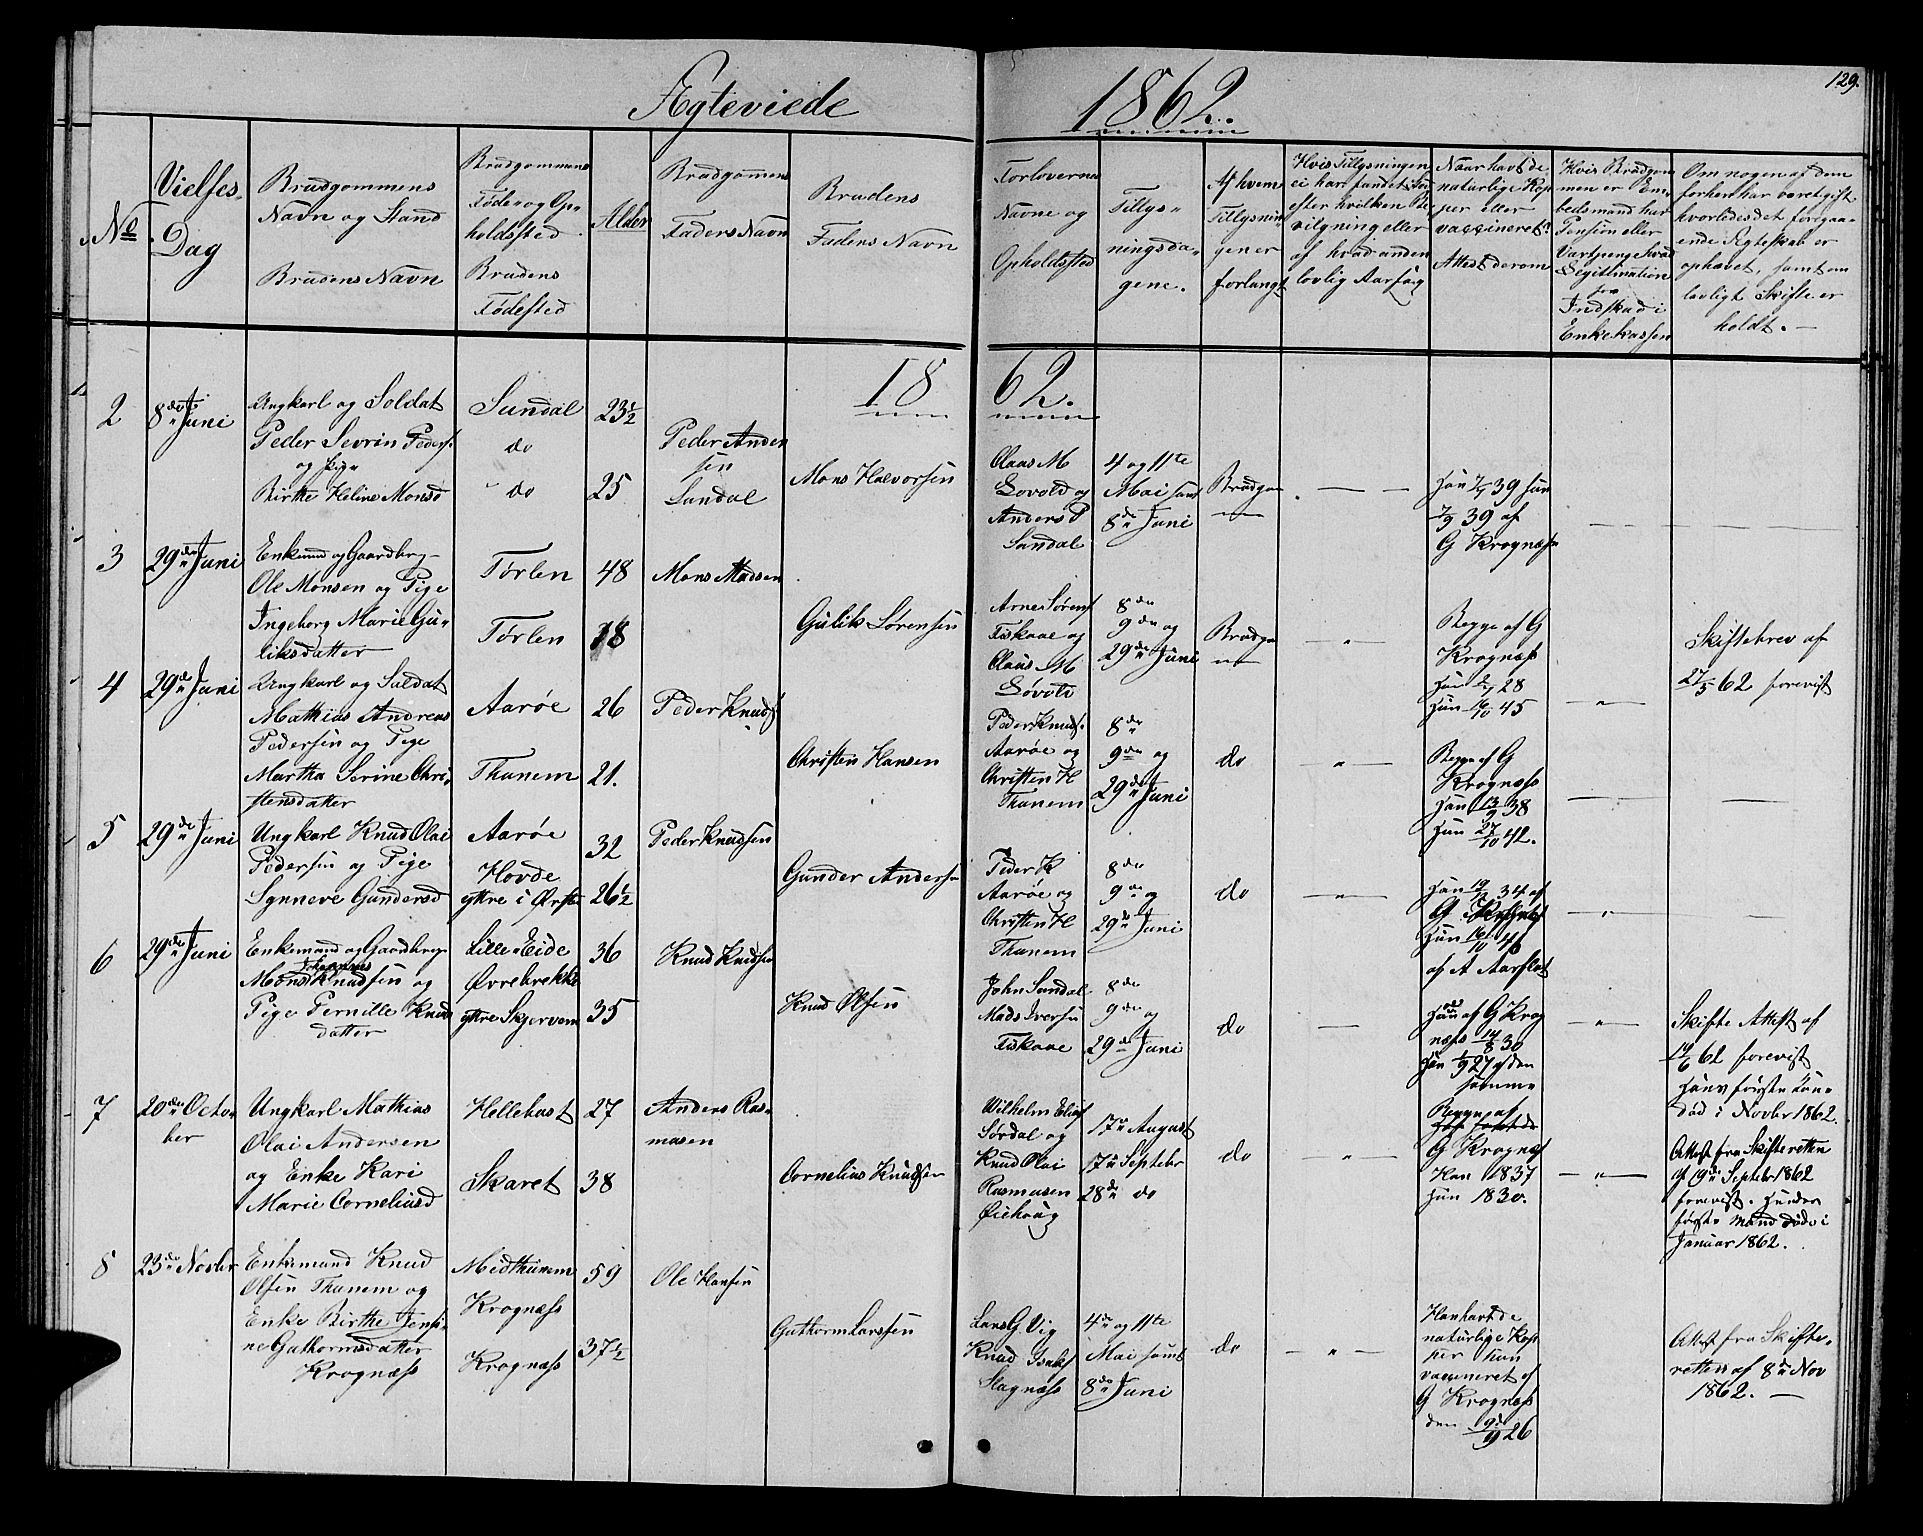 Ægteviede
1862.
129.
No
Vielses-
Dag
Brudgommens
Navn og Stand
Brudens Navn
Brudgommens
Føde- og Op-
holdssted.
Brudens
Fødested
Alder
Brudgommens
Faders Navn
Brudens
Faders Navn
Forlovernes
Navne og
Opholdssted
Tillys-
ningsda-
gene.
Af hvem
Tillysnin-
gen er
forlangt
Hvis Tillysningen
ei har fundet Sted
efter hvilken Be
vilgning eller
af hvad anden
lovlig Aarsag
Naar havt de
naturlige Kop
per eller
vaccineret?
Attest derom
Hvis Brudgom
men er Em-
bedsmand har
Pension eller
Vartpenge hvad
Legitimation
for
Indskud i
Enkekassen
Om nogen af dem
forhen har været gift
hvorledes det foregaa-
ende Ægteskab er
ophævet, samt om
lovligt Skifte er
holdt. —
18
62.
2
8de Juni
Ungkarl og Soldat
Peder Sevrin Peders.
og Pige
Birthe Heline Monsd
Sundal
do
do
23½
25
Peder Ander
sen
Sundal
Mons Halvorsen
Claas M
Lovold og
Anders P
Sundal
4 og 11te
Mai samt
8de Juni
Brudgom
39
39 af
G Krognæss
3
29de Juni
Enkemd og Gaardbrg-
Ole Monsen og Pige
Ingeborg Marie Gu-
liksdatter
Tørlen
Tørlen
48
18
Mons Madsen
Gulik Sørensen
Arne Sørens
Fiskaae og
Claus M
Løvold
8de
9de og
29de Juni
Brudgom
Begge af G
Krognæss
28
45
Skiftebrev af
27/5 62 forevist
4
29de Juni
Ungkarl og Soldat
Mathias Andreas
Pedersen og Pige
Martha Serine Chri-
stensdatter
Aarøe
Thunem
26
21.
Peder Knuds
Christen Hansen
Peder Knuds.
Aarøe og
Christen H
Thunem
8de
9de og
29de Juni
do
Begge af G
Krognæss
13/9 38
27/10 42.
5
29de Juni
Ungkarl Knud Olai
Pedersen og Pige
Synneve Gundersd
Aarøe
Hovde
yttre i Ørsten
32
26½
Peder Knudsen
Gunder Andersen
Peder K
Aarøe og
Christen H
Thunem
8de
9de og
29de Juni
do
34 af
G Krognæs
46
af A Aarflot
6
29de Juni
Enkemand og Gaardbrug
Johannes
Mons Knudsen og
Pige Pernille Knuds
datter
Lille-Eide
Øvrebrekke
yttre Skjerven
36
35
Knud Knudsen
Knud Olsen
John Sundal
Mads Iversen
Fiskaae
8de
9de og
29de Juni
do
af G Krog
næss 14/8 30
27 af den
samme
Skifte Attest af
62 forevist
Hans første Kone
død i Novbr 1862.
7
20de Octo-
ber
Ungkarl Mathias
Olai Andersen
og Enke Kari
Marie Corneliusd
Hellebust
Skaret
27
38
Anders Ras-
musen
Cornelius Knudsen
Wilhelm Elias
Sørdal og
Knud Olai
Rasmusen
Øiehaug
17de August
17de Septebr
28de do
do
Begge af
G Krognæs
Han 1837
Hun 1830.
Attest fra Skifteretten
af 19de Septebr 1862
forevist. Hendes
første Mand døde i
Januar 1862.
8
23de Novbr
Enkemand Knud
Olsen Thunem og
Enke Birthe Jensi-
ne Guthormsdatter
Krognæss
Midthunem
Krognæss
Krognæss
59
37½
Ole Hansen
Guthorm Larssen
Lars G. Vig
Knud Isaks
Slagnæss
4de og 11te
Mai samt
8de Juni
do
Han havt de
naturlige Kop
per hun
vaccineret af
G Krognæss
den 9de/9 26
Attest fra Skifte-
retten af 8de Nov
1862. —